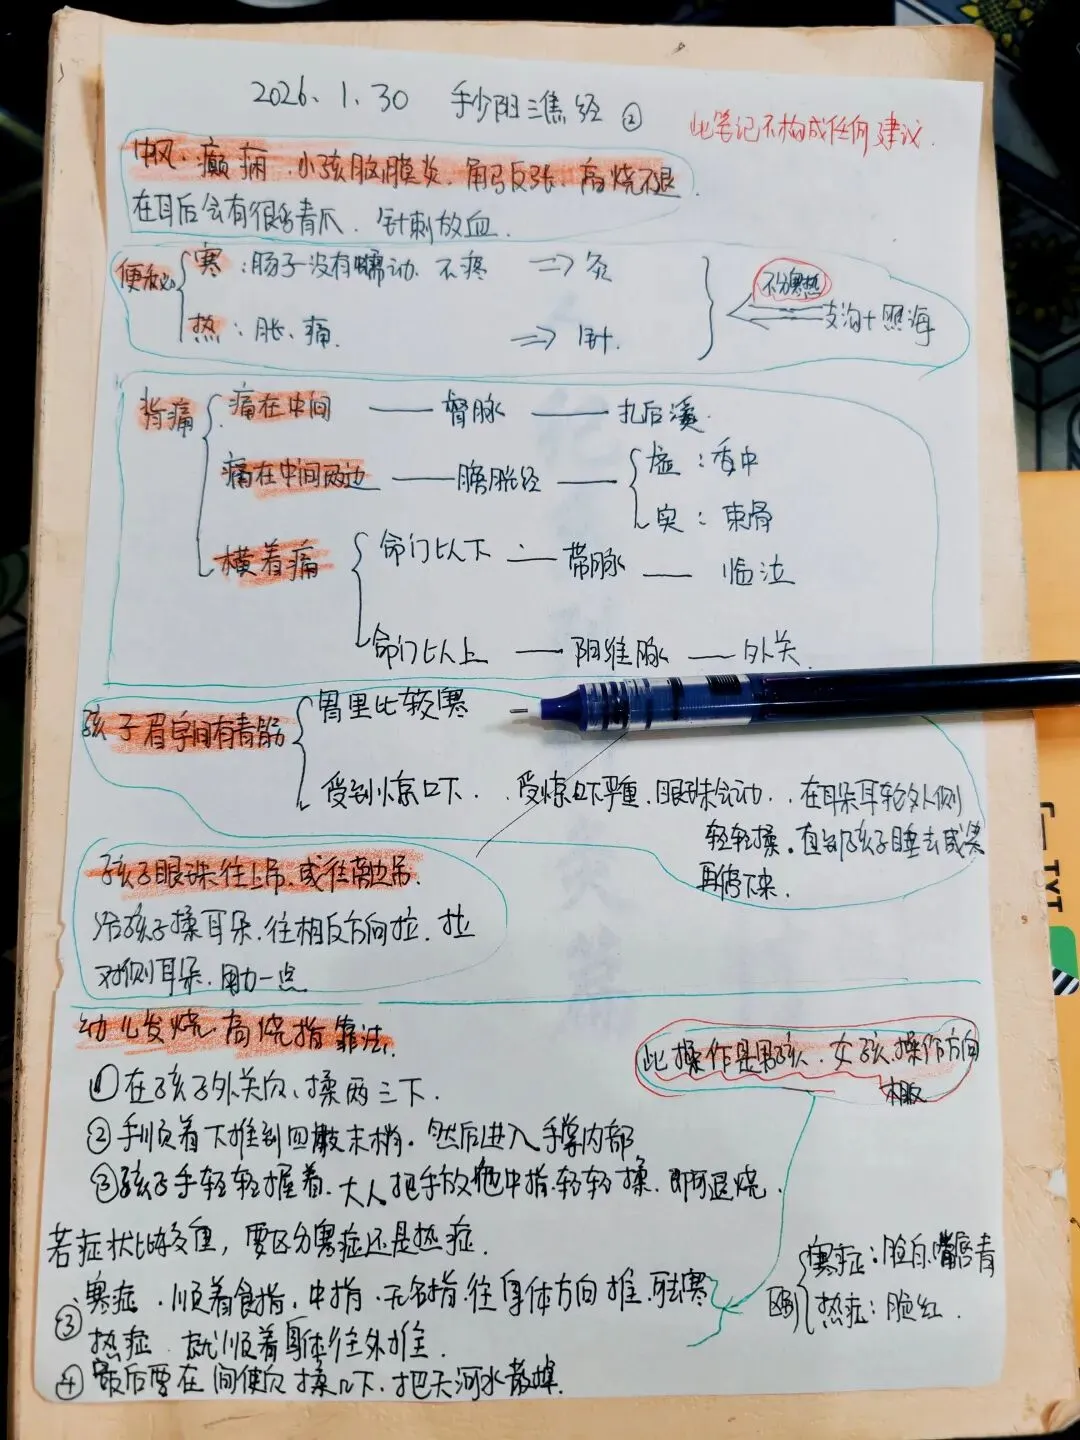 2026、1、30 手少阳三焦经 ②
此笔记不构成任何建议.
中风、癫痫、小孩脑膜炎、角弓反张、高烧不退.
在耳后会有很多青爪、针刺放血.
便秘
寒:肠子没有蠕动、不疼 ⇒ 灸
热:胀、痛. ⇒ 针.
不分寒热
支沟+照海
背痛
痛在中间 — 督脉 — 扎后溪.
痛在中间两边 — 膀胱经
虚:委中
实:束骨
横着痛
命门以下 — 带脉 — 临泣
命门以上 — 阳维脉 — 外关.
孩子眉字间有青筋
胃里比较寒
受到惊吓. 受惊吓严重.眼珠会动. 在耳朵耳轮外侧
轻轻揉.直到孩子睡去或笑
再停下来.
孩子眼珠往上吊.或往离边吊.
给孩子揉耳朵.往相反方向拉.拉
对侧耳朵.用力一点
幼儿发烧.高烧指靠法.
此操作是男孩.女孩操作方向
相反
①在孩子外关穴、揉两三下.
②手顺着下推到四肢末梢.然后进入手掌内部
③孩子手轻轻握着.大人把手放他中指.轻轻揉.即可退烧.
若症状比较重,要区分寒症还是热症.
③
寒症.顺着食指、中指.无名指.往身体方向推.驱寒
热症 就顺着身体往外推.
区别
寒症:脸白.嘴唇青
热症:脸红.
④最后要在间使穴揉几下.把天河水散掉.
TXT